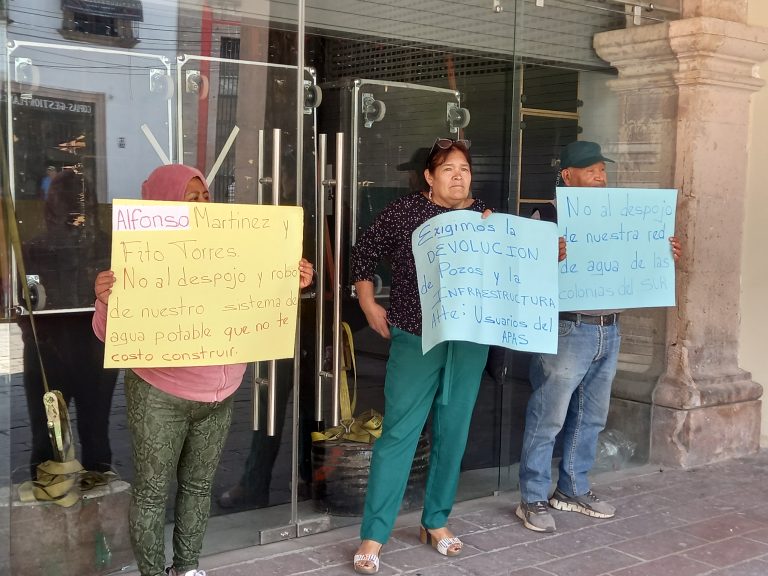 Alfonso Martinez y
Fito Torres.
No al despojo y robo
de nuestro sistema de
agua potable que no te
costo construir.
Exigimos la
DEVOLUCION
de Pozos y la
INFRAESTRUCTURA
Atte: Usuarios del
APAS
No al despojo
de nuestra red
de agua de las
colonias del SUR